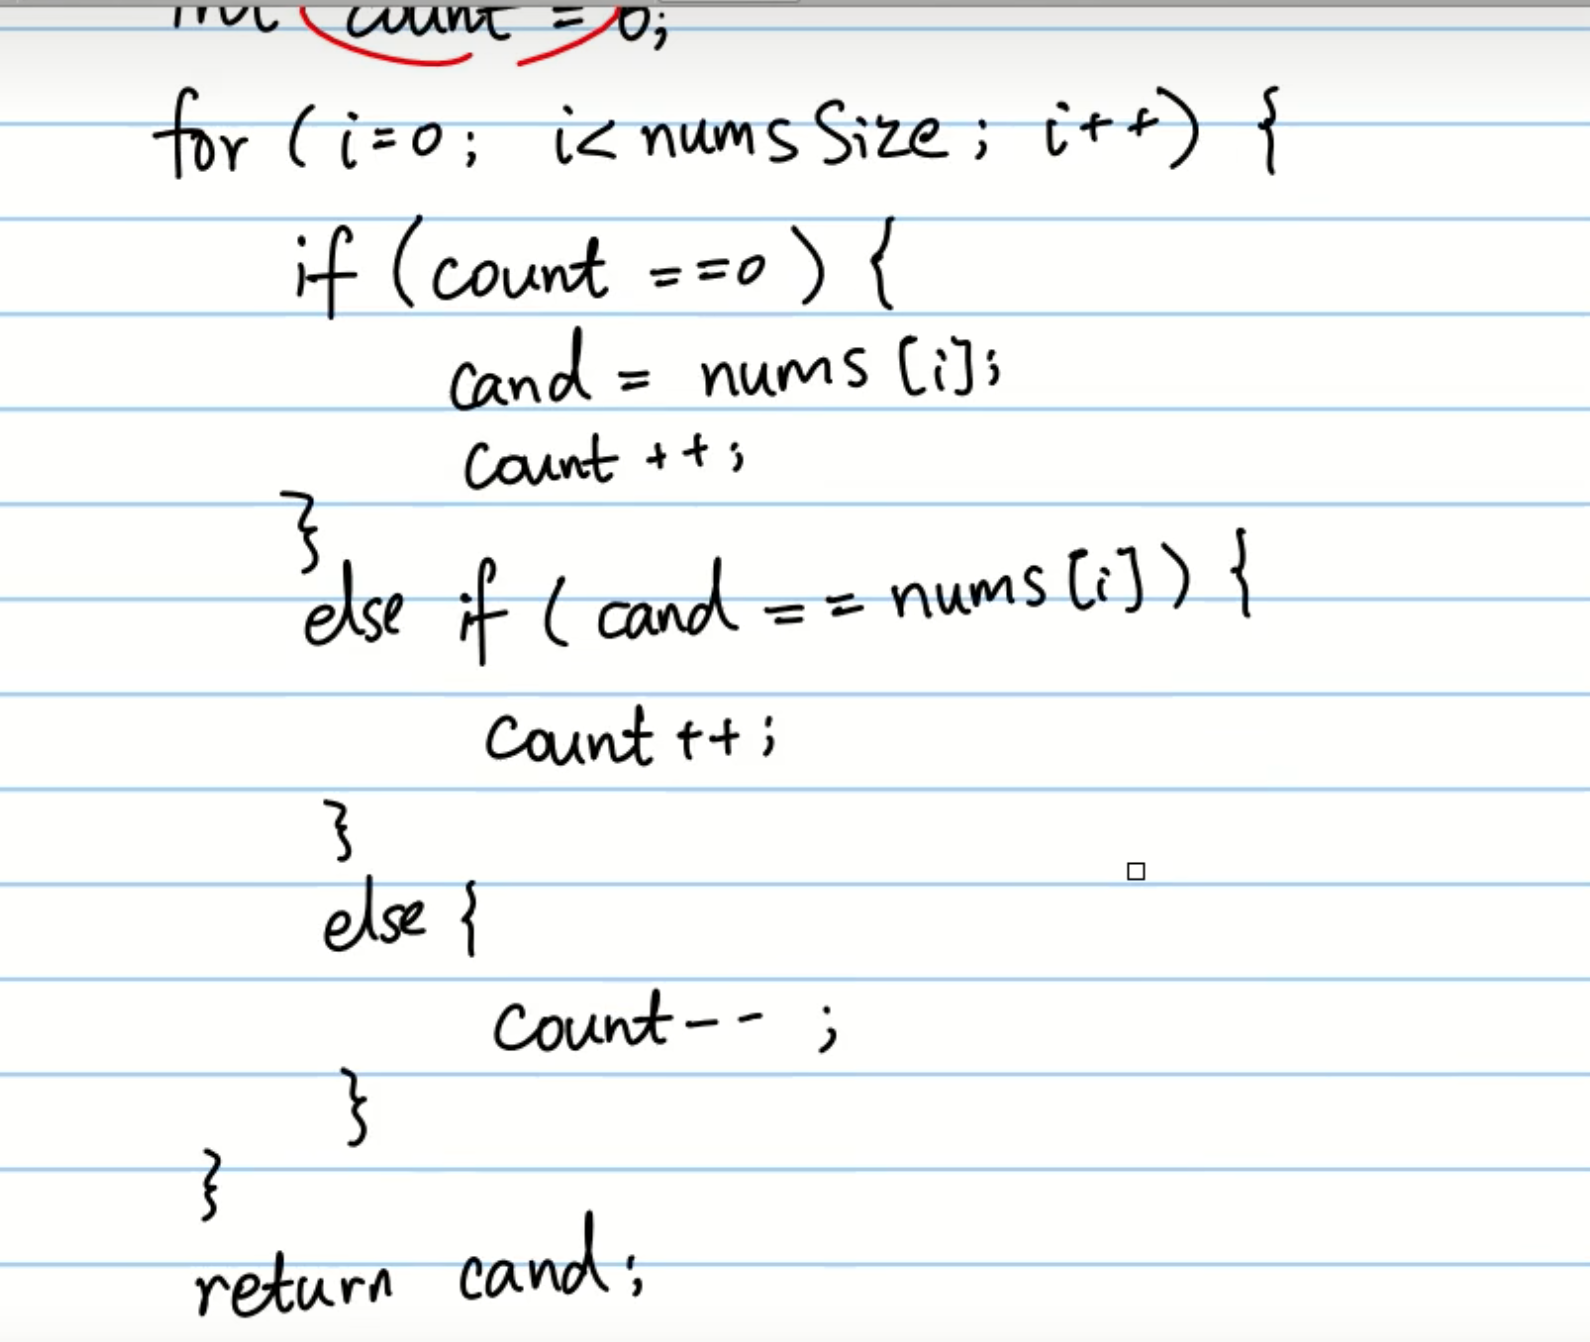 int count = 0;
for (i=0; i<numsSize; i++) {
if (count ==0) {
cand = nums [i];
count ++;
}
else if ( cand == nums [i]) {
count ++;
}
else {
count -- ;
}
}
return cand;